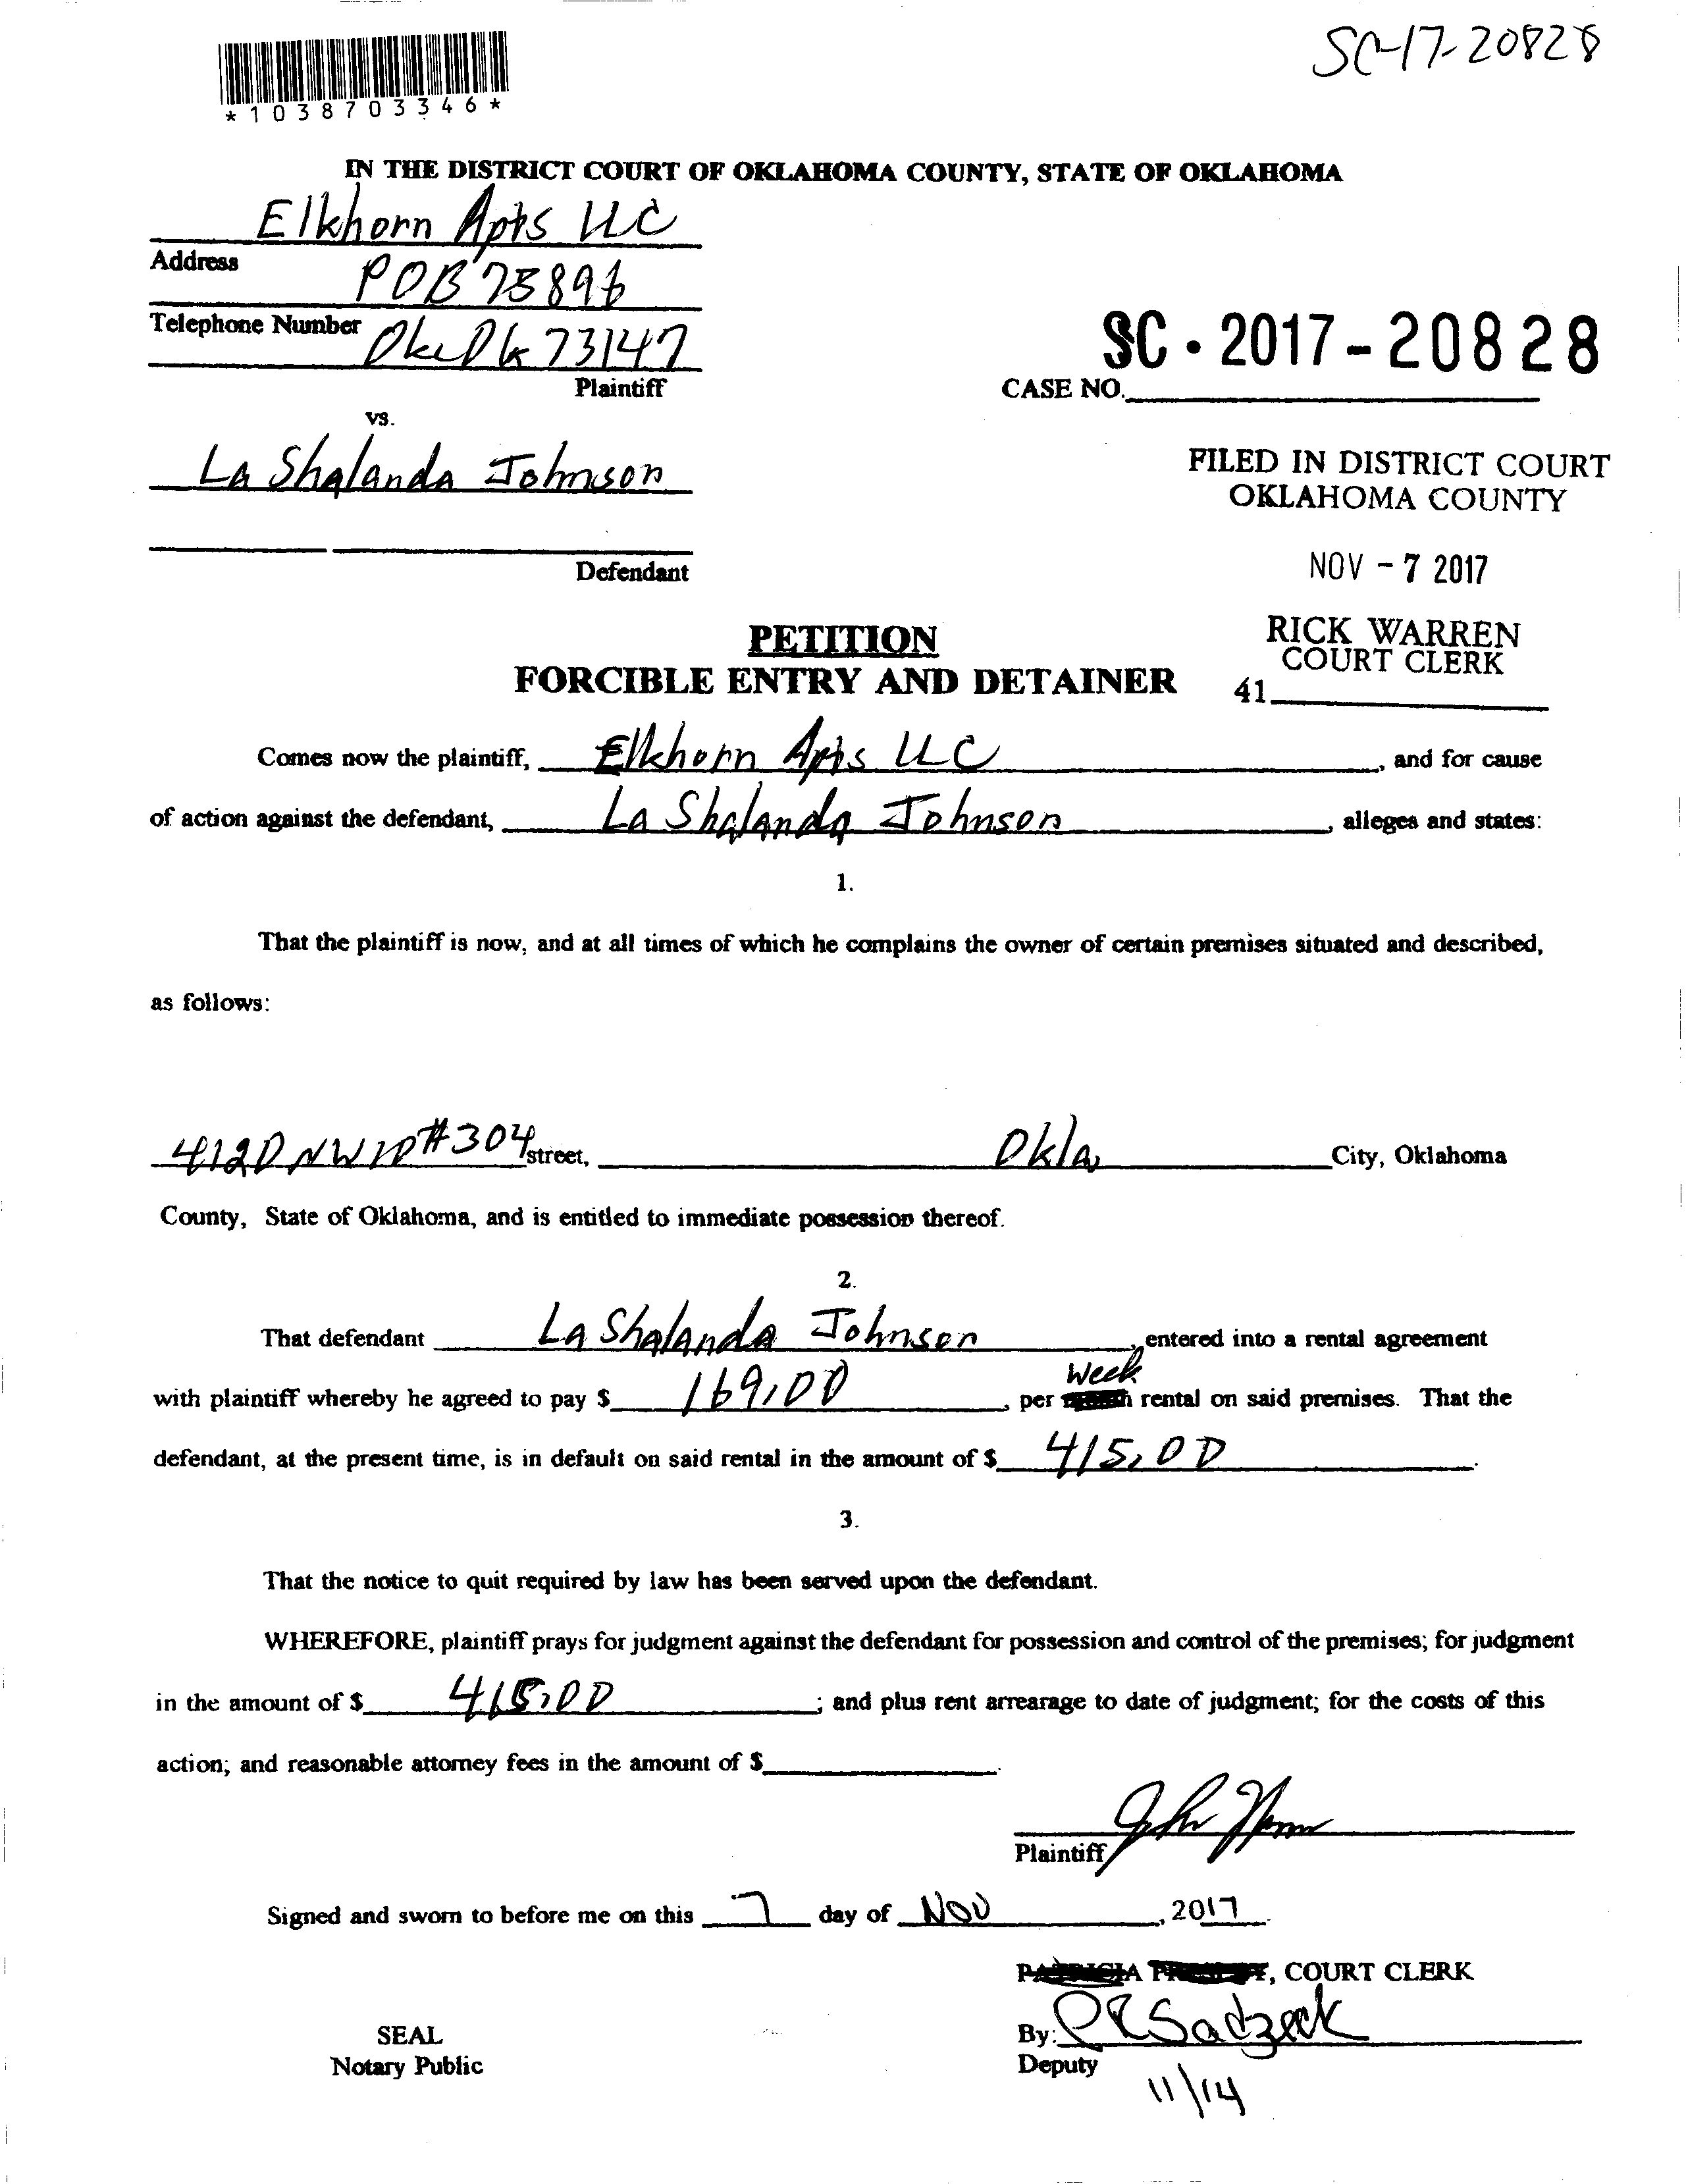 SC-17-20828
*1038703346*
IN THE DISTRICT COURT OF OKLAHOMA COUNTY, STATE OF OKLAHOMA
Elkhorn Apts LLC
Address POB 75896
Telephone Number Okc Ok 73147
Plaintiff
SC - 2017 - 20828
CASE NO.
vs.
La Shalanda Johnson
Defendant
FILED IN DISTRICT COURT
OKLAHOMA COUNTY
NOV - 7 2017
RICK WARREN
COURT CLERK
41
PETITION
FORCIBLE ENTRY AND DETAINER
Comes now the plaintiff, Elkhorn Apts LLC, and for cause
of action against the defendant, La Shalanda Johnson, alleges and states:
1.
That the plaintiff is now, and at all times of which he complains the owner of certain premises situated and described,
as follows:
4120 NW 10 #304 street, Okla, City, Oklahoma
County, State of Oklahoma, and is entitled to immediate possession thereof.
2.
That defendant La Shalanda Johnson, entered into a rental agreement
Week
with plaintiff whereby he agreed to pay $ 169.00, per rental on said premises. That the
defendant, at the present time, is in default on said rental in the amount of $ 415.00.
3.
That the notice to quit required by law has been served upon the defendant.
WHEREFORE, plaintiff prays for judgment against the defendant for possession and control of the premises; for judgment
in the amount of $ 415.00; and plus rent arrearage to date of judgment; for the costs of this
action; and reasonable attorney fees in the amount of $.
Plaintiff John
Signed and sworn to before me on this 7 day of Nov, 2017.
, COURT CLERK
SEAL
Notary Public
By:
Deputy
11/14